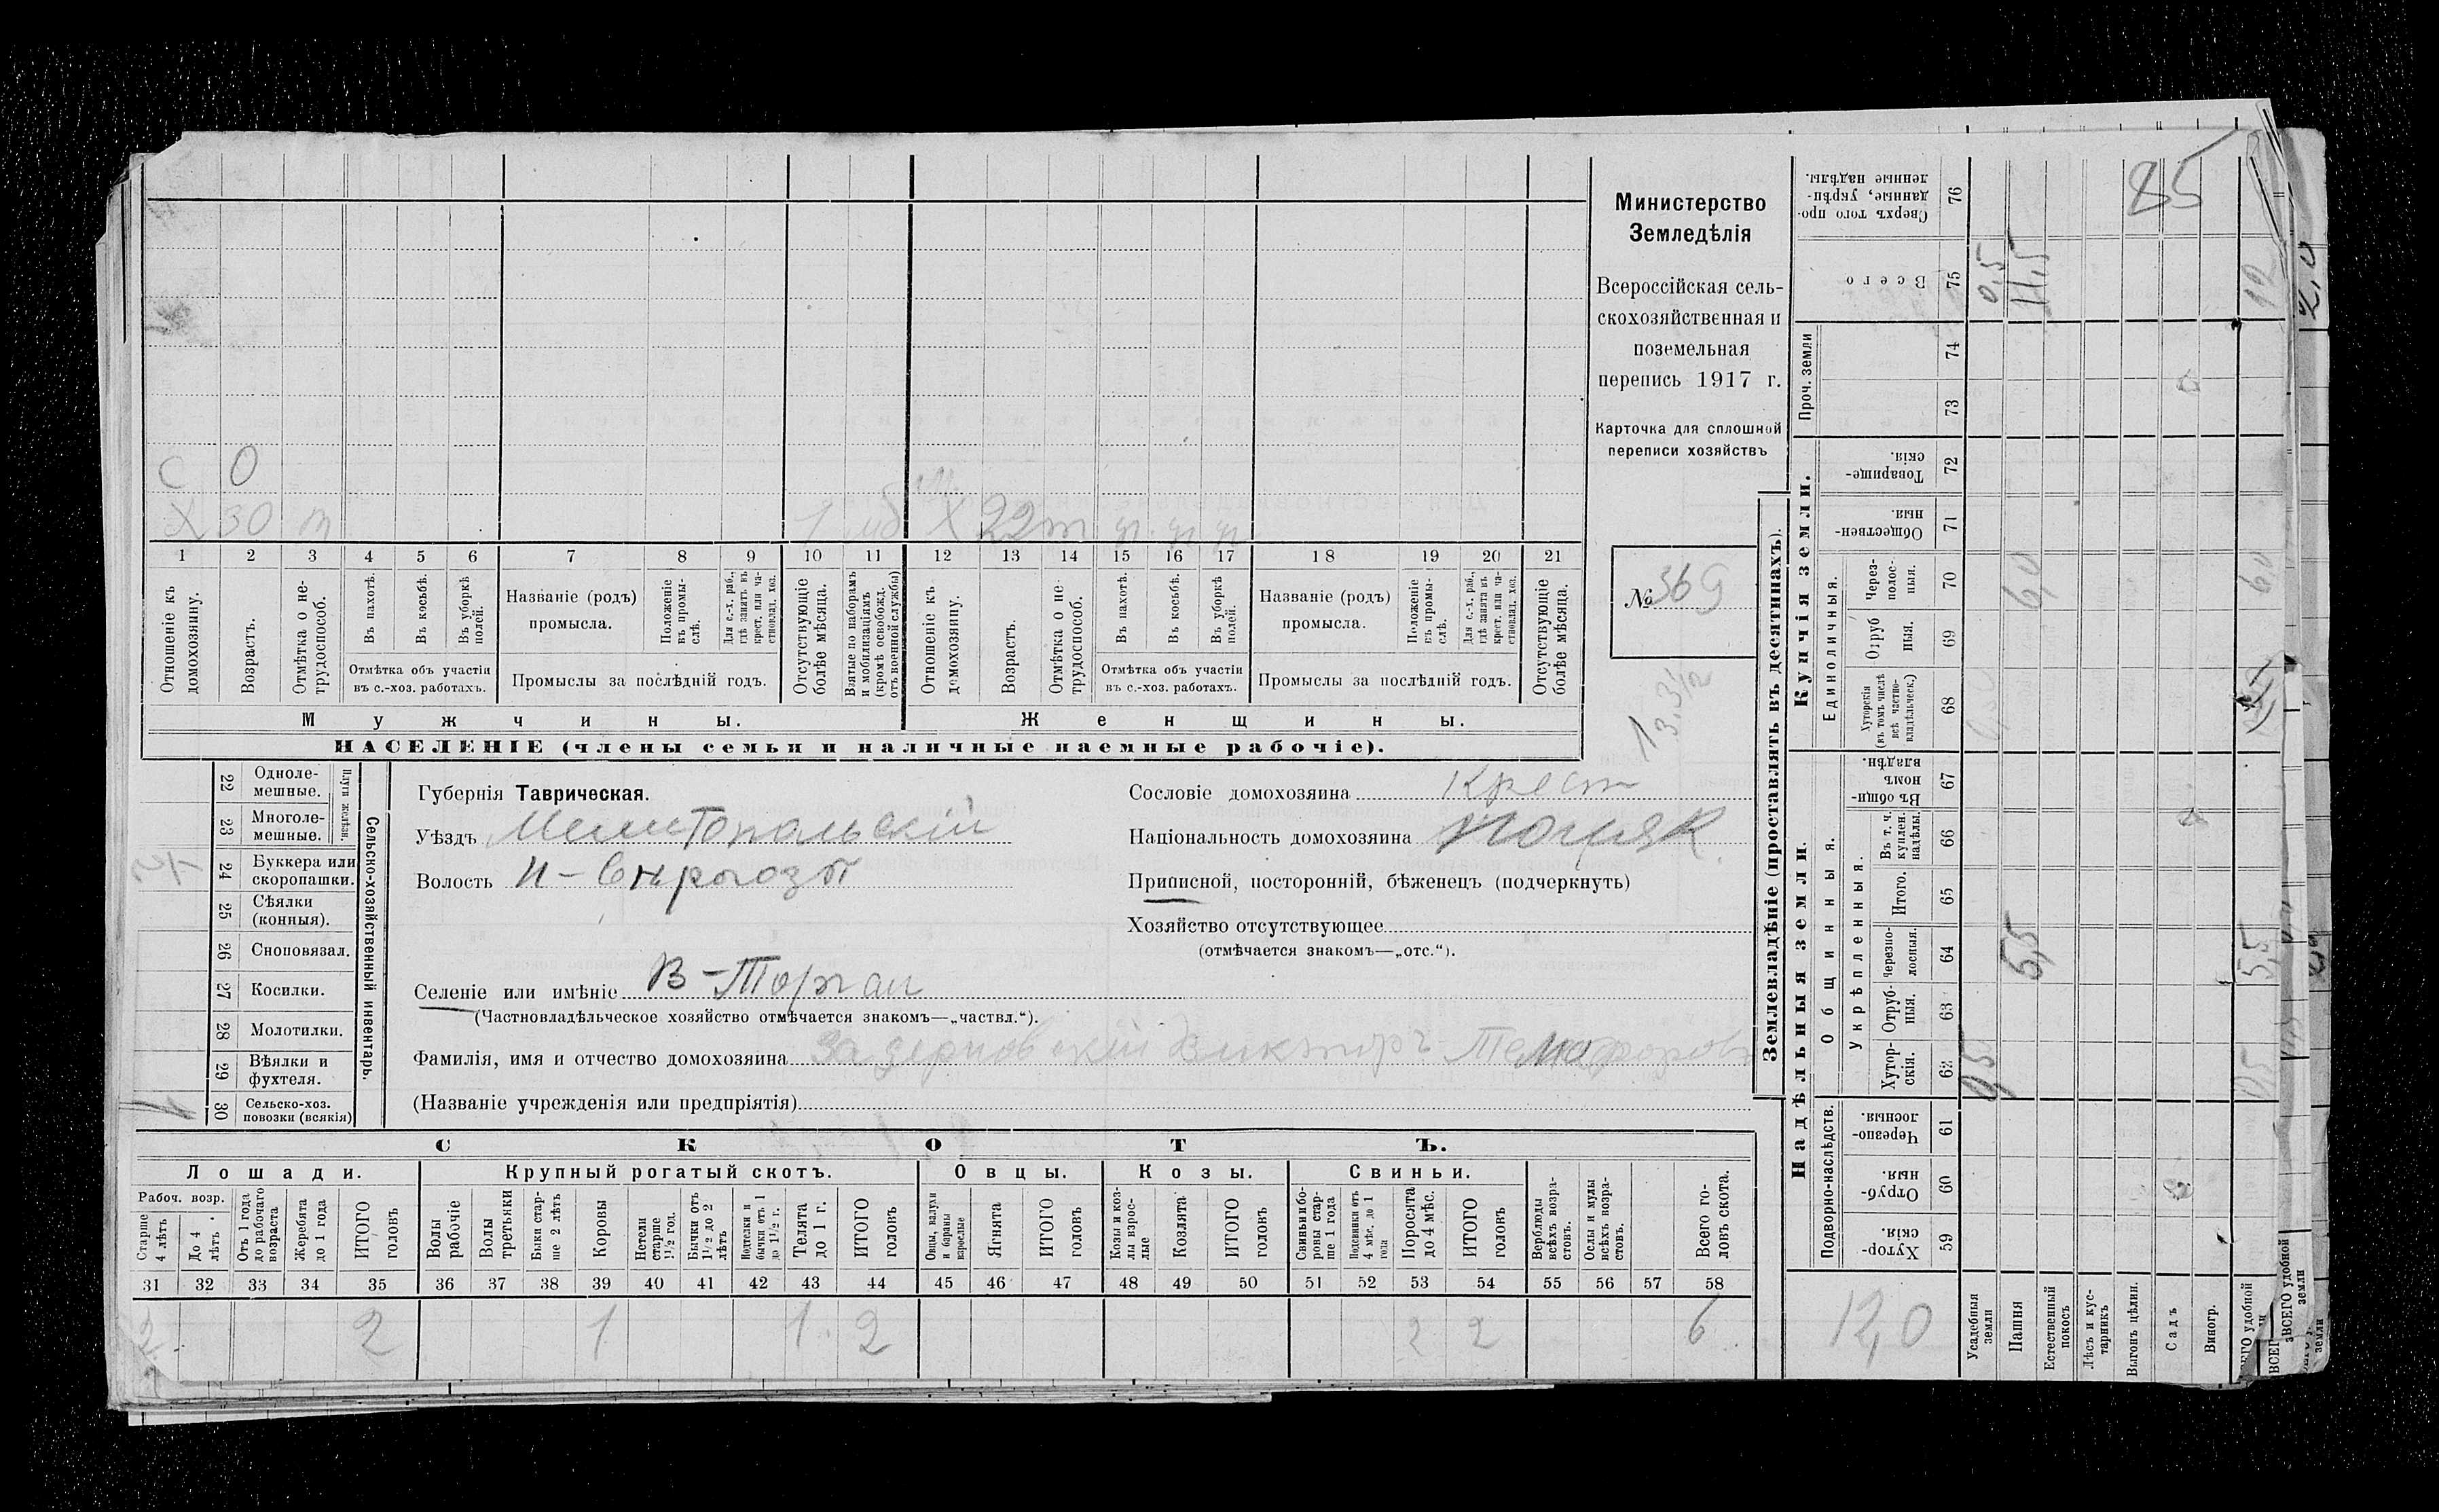 Министерство
Земледѣлія
Всероссійская сель-
скохозяйственная и
поземельная
перепись 1917 г.
Карточка для сплошной
переписи хозяйствъ
№ 369
13.3/12
С 0
Х 30 т 1 мб Х 22 т
1 2 3 4 5 6 7 8 9 10 11 12 13 14 15 16 17 18 19 20 21
Отношеніе къ домохозяину.
Возрастъ.
Отмѣтка о не-трудоспособ.
Въ пахотѣ.
Въ косьбѣ.
Въ уборкѣ полей.
Отмѣтка объ участіи
въ с.-хоз. работахъ.
Названіе (родъ)
промысла.
Положеніе въ промы-слѣ.
Для с.-х. раб., гдѣ занятъ въ крест. или ча-стновлад. хоз.
Промыслы за послѣдній годъ.
Отсутствующіе болѣе мѣсяца.
Взятые по наборамъ и мобилизаціямъ (кромѣ освобожд. отъ военной службы)
Отношеніе къ домохозяину.
Возрастъ.
Отмѣтка о не-трудоспособ.
Въ пахотѣ.
Въ косьбѣ.
Въ уборкѣ полей.
Отмѣтка объ участіи
въ с.-хоз. работахъ.
Названіе (родъ)
промысла.
Положеніе въ промы-слѣ.
Для с.-х. раб., гдѣ занята въ крест. или ча-стновлад. хоз.
Промыслы за послѣдній годъ.
Отсутствующіе болѣе мѣсяца.
Мужчины. Женщины.
НАСЕЛЕНІЕ (члены семьи и наличные наемные рабочіе).
Сельско-хозяйственный инвентарь.
Плуги желѣзн.
22 Одноле-мешные.
23 Многоле-мешные.
24 Буккера или скоропашки.
25 Сѣялки (конныя).
26 Сноповязал.
27 Косилки.
28 Молотилки.
29 Вѣялки и фухтеля.
30 Сельско-хоз. повозки (всякія)
1
Губернія Таврическая.
Уѣздъ Мелитопольскій
Волость Н-Сѣрогозы
Селеніе или имѣніе В-Торгаи
(Частновладѣльческое хозяйство отмѣчается знакомъ—„частвл.“).
Фамилія, имя и отчество домохозяина Задерновскій Викторъ
(Названіе учрежденія или предпріятія)
Сословіе домохозяина Крест
Національность домохозяина Поляк.
Приписной, посторонній, бѣженецъ (подчеркнуть)
Хозяйство отсутствующее
(отмѣчается знакомъ—„отс.“).
СКОТЪ.
Лошади. Крупный рогатый скотъ. Овцы. Козы. Свиньи.
Рабоч. возр.
Старше 4 лѣтъ
До 4 лѣтъ.
Отъ 1 года до рабочаго возраста
Жеребята до 1 года
ИТОГО головъ
Волы рабочіе
Волы третьяки
Быки стар-ше 2 лѣтъ
Коровы
Нетели старше 1½ год.
Бычки отъ 1½ до 2 лѣтъ
Подтелки и бычки отъ 1 до 1½ г.
Телята до 1 г.
ИТОГО головъ
Овцы, валухи и бараны взрослые
Ягнята
ИТОГО головъ
Козы и коз-лы взрос-лые
Козлята
ИТОГО головъ
Свиньи и бо-ровы стар-ше 1 года
Подсвинки отъ 4 мѣс. до 1 года
Поросята до 4 мѣс.
ИТОГО головъ
Верблюды всѣхъ возра-стовъ.
Ослы и мулы всѣхъ возра-стовъ.
Всего го-ловъ скота.
31 32 33 34 35 36 37 38 39 40 41 42 43 44 45 46 47 48 49 50 51 52 53 54 55 56 57 58
2 2 1 1 2 2 2 6
Землевладѣніе (проставлять въ десятинахъ).
Надѣльныя земли.
Подворно-наслѣдств.
Хутор-скія. 59
Отруб-ныя. 60
Черезпо-лосныя 61
Общинныя.
Укрѣпленныя.
Хутор-скія. 62
Отруб-ныя. 63
Черезпо-лосныя. 64
Итого. 65
Въ т. ч. куплен. надѣлы. 66
Въ общи-номъ владѣн. 67
Купчія земли.
Единоличныя.
Хуторскія (въ томъ числѣ всѣ частно-владѣльческ.) 68
Отруб ныя. 69
Через-полос-ныя. 70
Обществен-ныя 71
Товарище-скія. 72
Проч. земли
73
74
Всего 75
Сверхъ того про-данные, укрѣп-ленные надѣлы. 76
Усадебныя земли 0,5 0,5
Пашня 5,5 6,0 11,5
Естественный покосъ
Лѣсъ и кус-тарникъ
Выгонъ цѣлин.
Садъ
Виногр.
12,0
85
0,5 5,5 60 12
ВСЕГО удобной земли